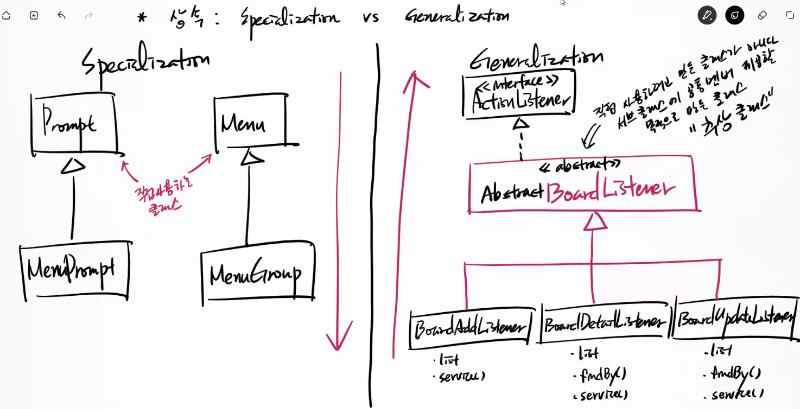 * 상속 : Specialization vs Generalization
Specialization
Prompt
Menu
직접 사용하는
클래스
MenuPrompt
MenuGroup
Generalization
<<interface>>
ActionListener
직접 사용하려고 만든 클래스가 아니다
서브 클래스에 공통 멤버 제공할
목적으로 만든 클래스
"추상 클래스"
<<abstract>>
AbstractBoardListener
BoardAddListener
· list
· service()
BoardDetailListener
· list
· findBy()
· service()
BoardUpdateListener
· list
· findBy()
· service()